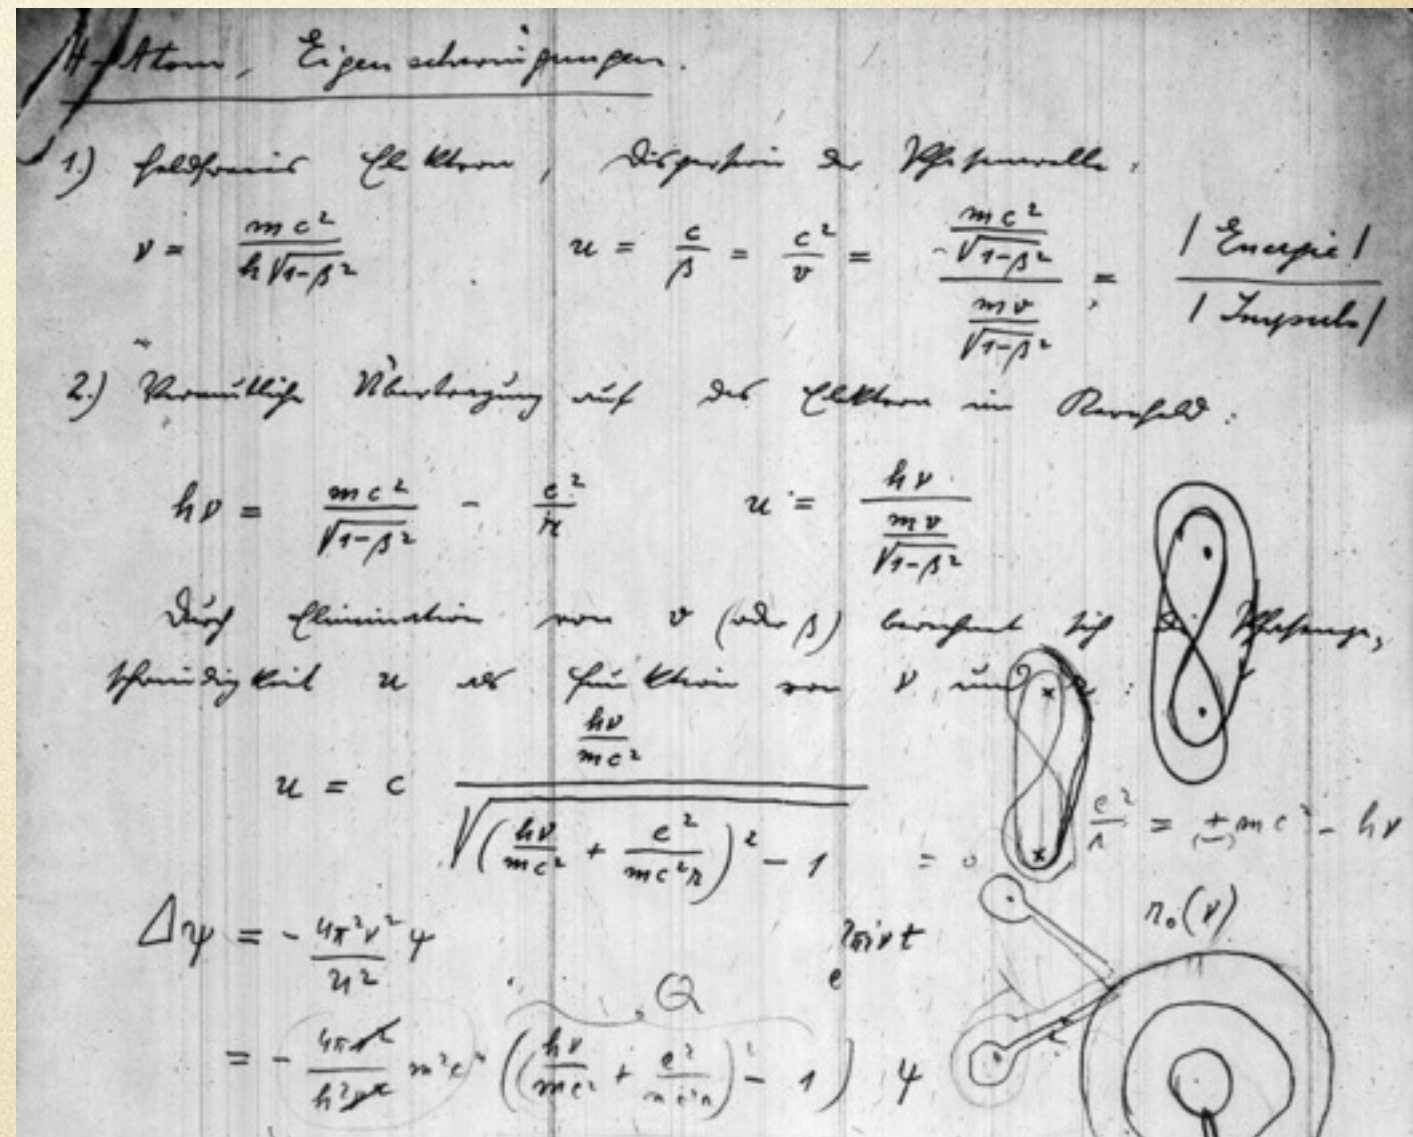 H-Atom, Eigenschwingungen.
1.) Feldfreies Elektron, Dispersion der Phasenwelle:
ν = mc² / (h√(1-β²))    u = c/β = c²/v = (mc²/√(1-β²)) / (mv/√(1-β²)) = |Energie| / |Impuls|
2.) Vermutliche Übertragung auf das Elektron im Kernfeld:
hν = mc²/√(1-β²) - e²/r    u = hν / (mv/√(1-β²))
Durch Elimination von v (oder β) berechnet sich die Phasenge-
schwindigkeit u als Funktion von ν und r:
u = c (hν/mc²) / √((hν/mc² + e²/mc²r)² - 1) = 0    e²/r = ± mc² - hν
r₀(ν)
Δψ = - (4π²ν²/u²) ψ    e^{2πiνt}
Q
= - (4π²/h²) m²c² ((hν/mc² + e²/mc²r)² - 1) ψ